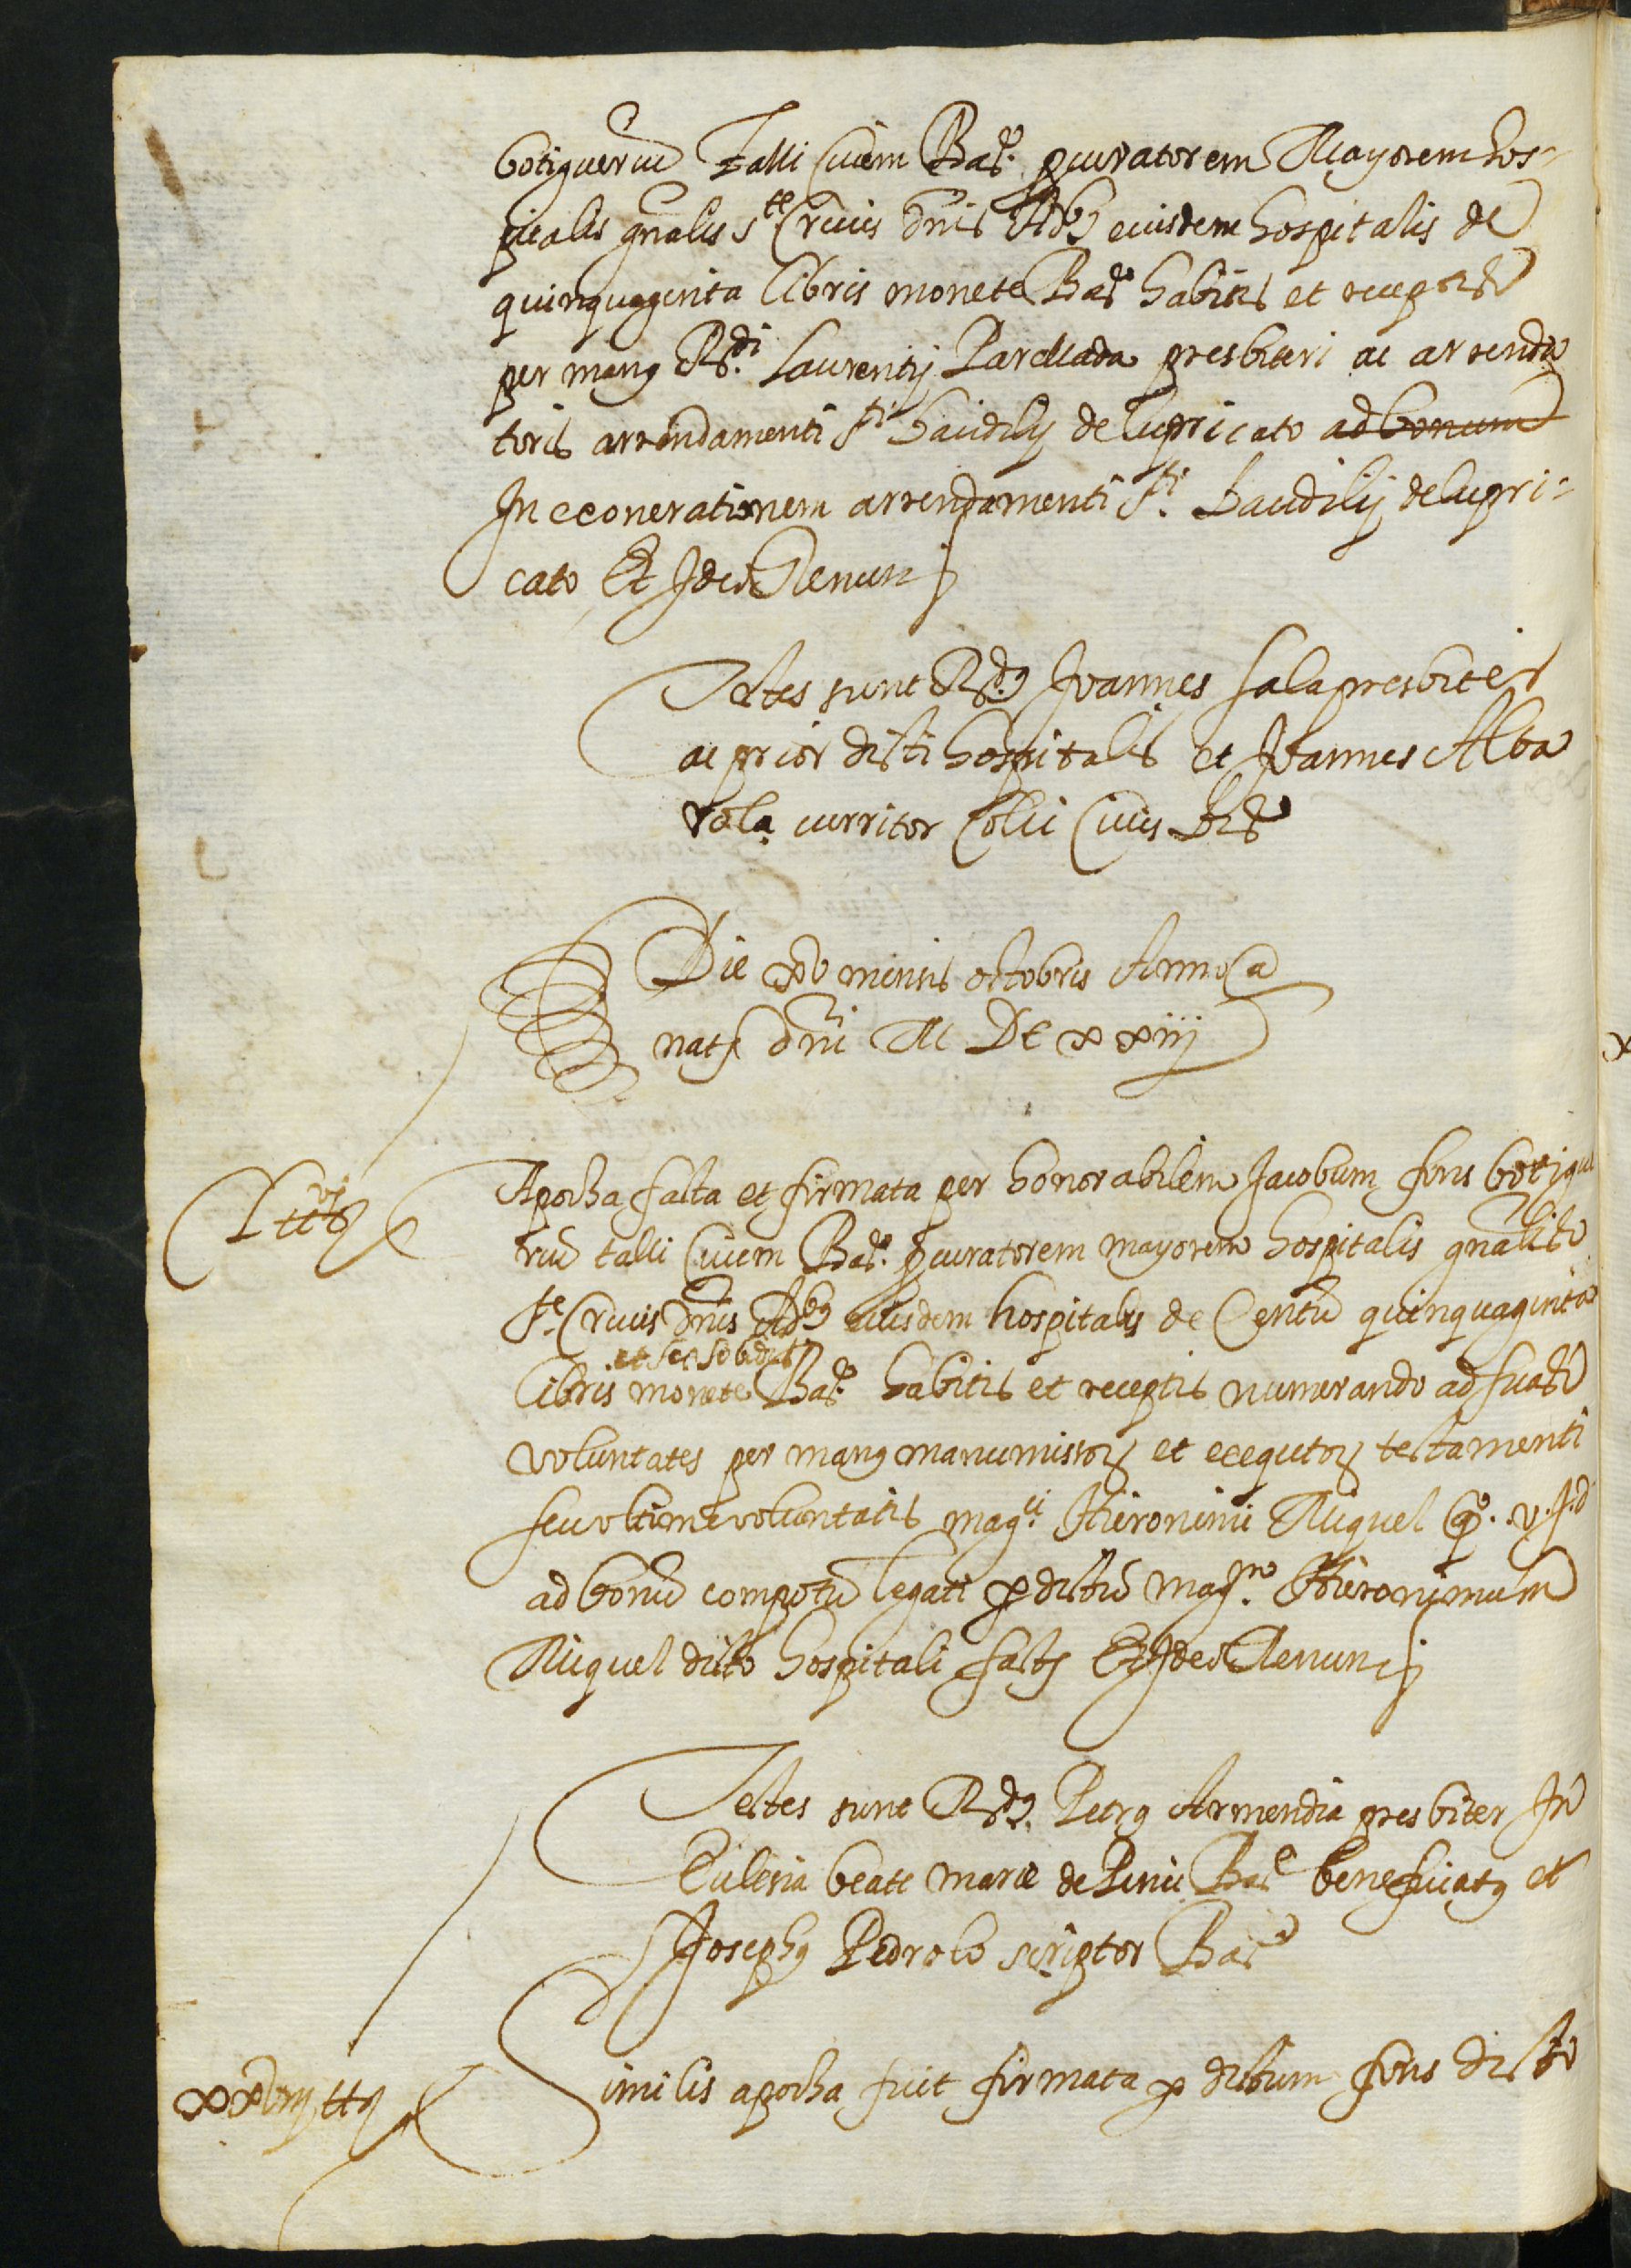 botiguerũ talli Civem Bar.ᵉ p̱curatorem Mayorem hos-
pitalis gñalis s.te Crucis dñis Adb9 eiusdem hospitalis de
quinquaginta libris monete Bar.ᵉ habitis et receptis
per man9 Rdi. Laurentij Parellada presbiteri ac arrenda
toris arrendamenti sti Baudilij de lupricato ad bonum
In exonerationem arrendamenti sti. Baudilij de lupri-
cato Et Ideo Renun
Testes sunt Rd9 Joannes Sala presbiter
ac prior dicti hospitalis et Joannes Alba
rola curritor Colli Civis Bar
Die xv mensis octobris Anno a
nat dñi M DC xxiij
Apocha facta et firmata per honorabilem Jacobum fons botigue
rũ talli Civem Bar.ᵉ p̱curatorem mayorem hospitalis gñalis
s.te Crucis dñis Adb9 eiusdem hospitalis de Centũ quinquaginta
et sex
libris monete Bar.ᵉ habitis et receptis numerando ad suas
voluntates per man9 manumissoꝝ et exequtoꝝ testamenti
seu ultime voluntatis mag.ci Hieronimi Miquel q.º v. J. d
ad bonũ compotũ legati p dictũ mag.m Hieronimum
Miquel dicto hospitali facti Et Ideo Renun
Testes sunt Rd9 Petr9 Armendia presbiter In
Ecclesia beate marie de Pinu Bar beneficiat9 et
Joseph9 Pedrolo scriptor Bar
xxviij tt9
Similis apocha fuit firmata p dictum fons dicto